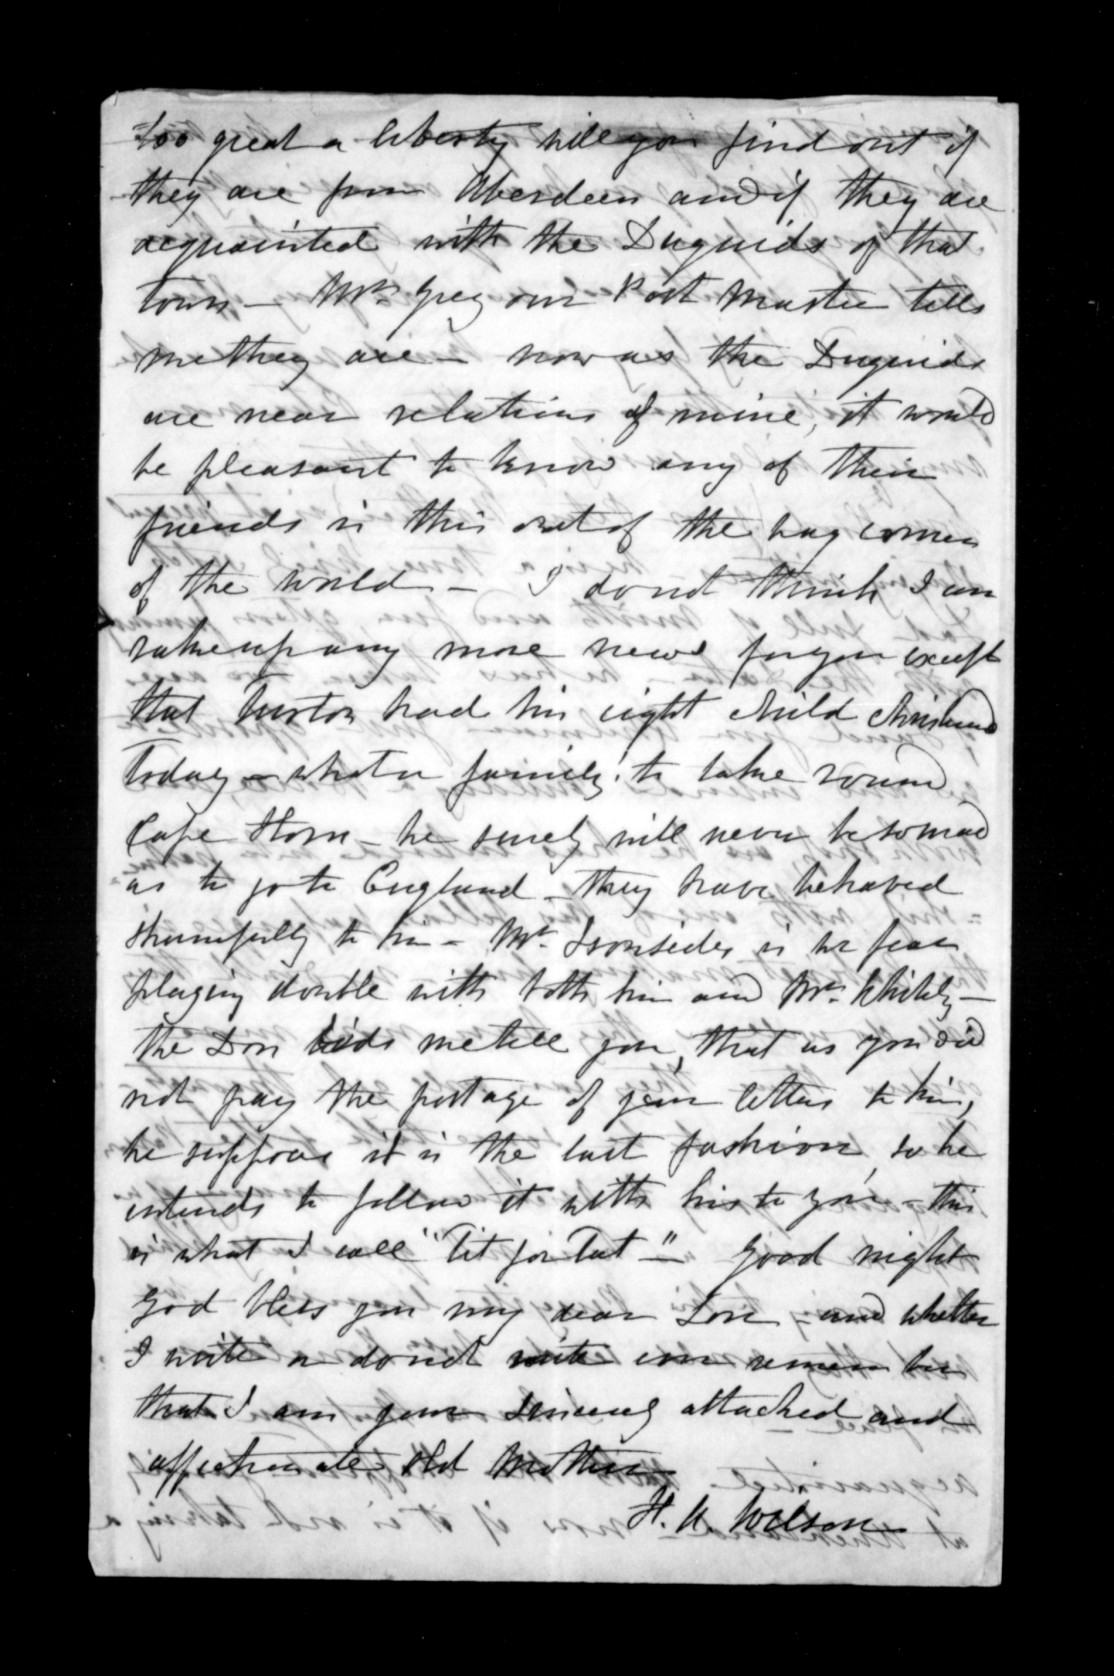 too great a liberty will you find out if
they are from Aberdeen and if they are
acquainted with the Duguids of that
town — Mrs Grey our Post Master tells
me they are — now as the Duguids
are near relations of mine, it would
be pleasant to know any of their
friends in this out of the way corner
of the world — I do not think I can
rake up any more news for you except
that had his eight child christened
Today — what a family! to take round
Cape Horn — he surely will never be so mad
as to go to England — they have behaved
shamefully to him — Mr. Ironsides is we fear
playing double with both him and Mrs. —
the Don bids me tell you, that as you did
not pay the postage of your letters to him,
he suppose it is the last fashion, so he
intends to follow it with his to you — this
is what I call "Tit for Tat —" Good night
God bless you my dear Son — and whether
I write or do not write ever remember
that I am your sincerely attached and
affectionate old Mother
H. A. Wilson